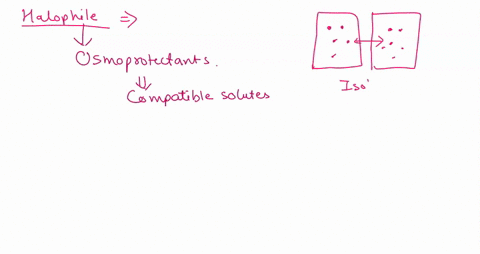 Halophile ⇒
Osmoprotectants.
Compatible solutes
Iso